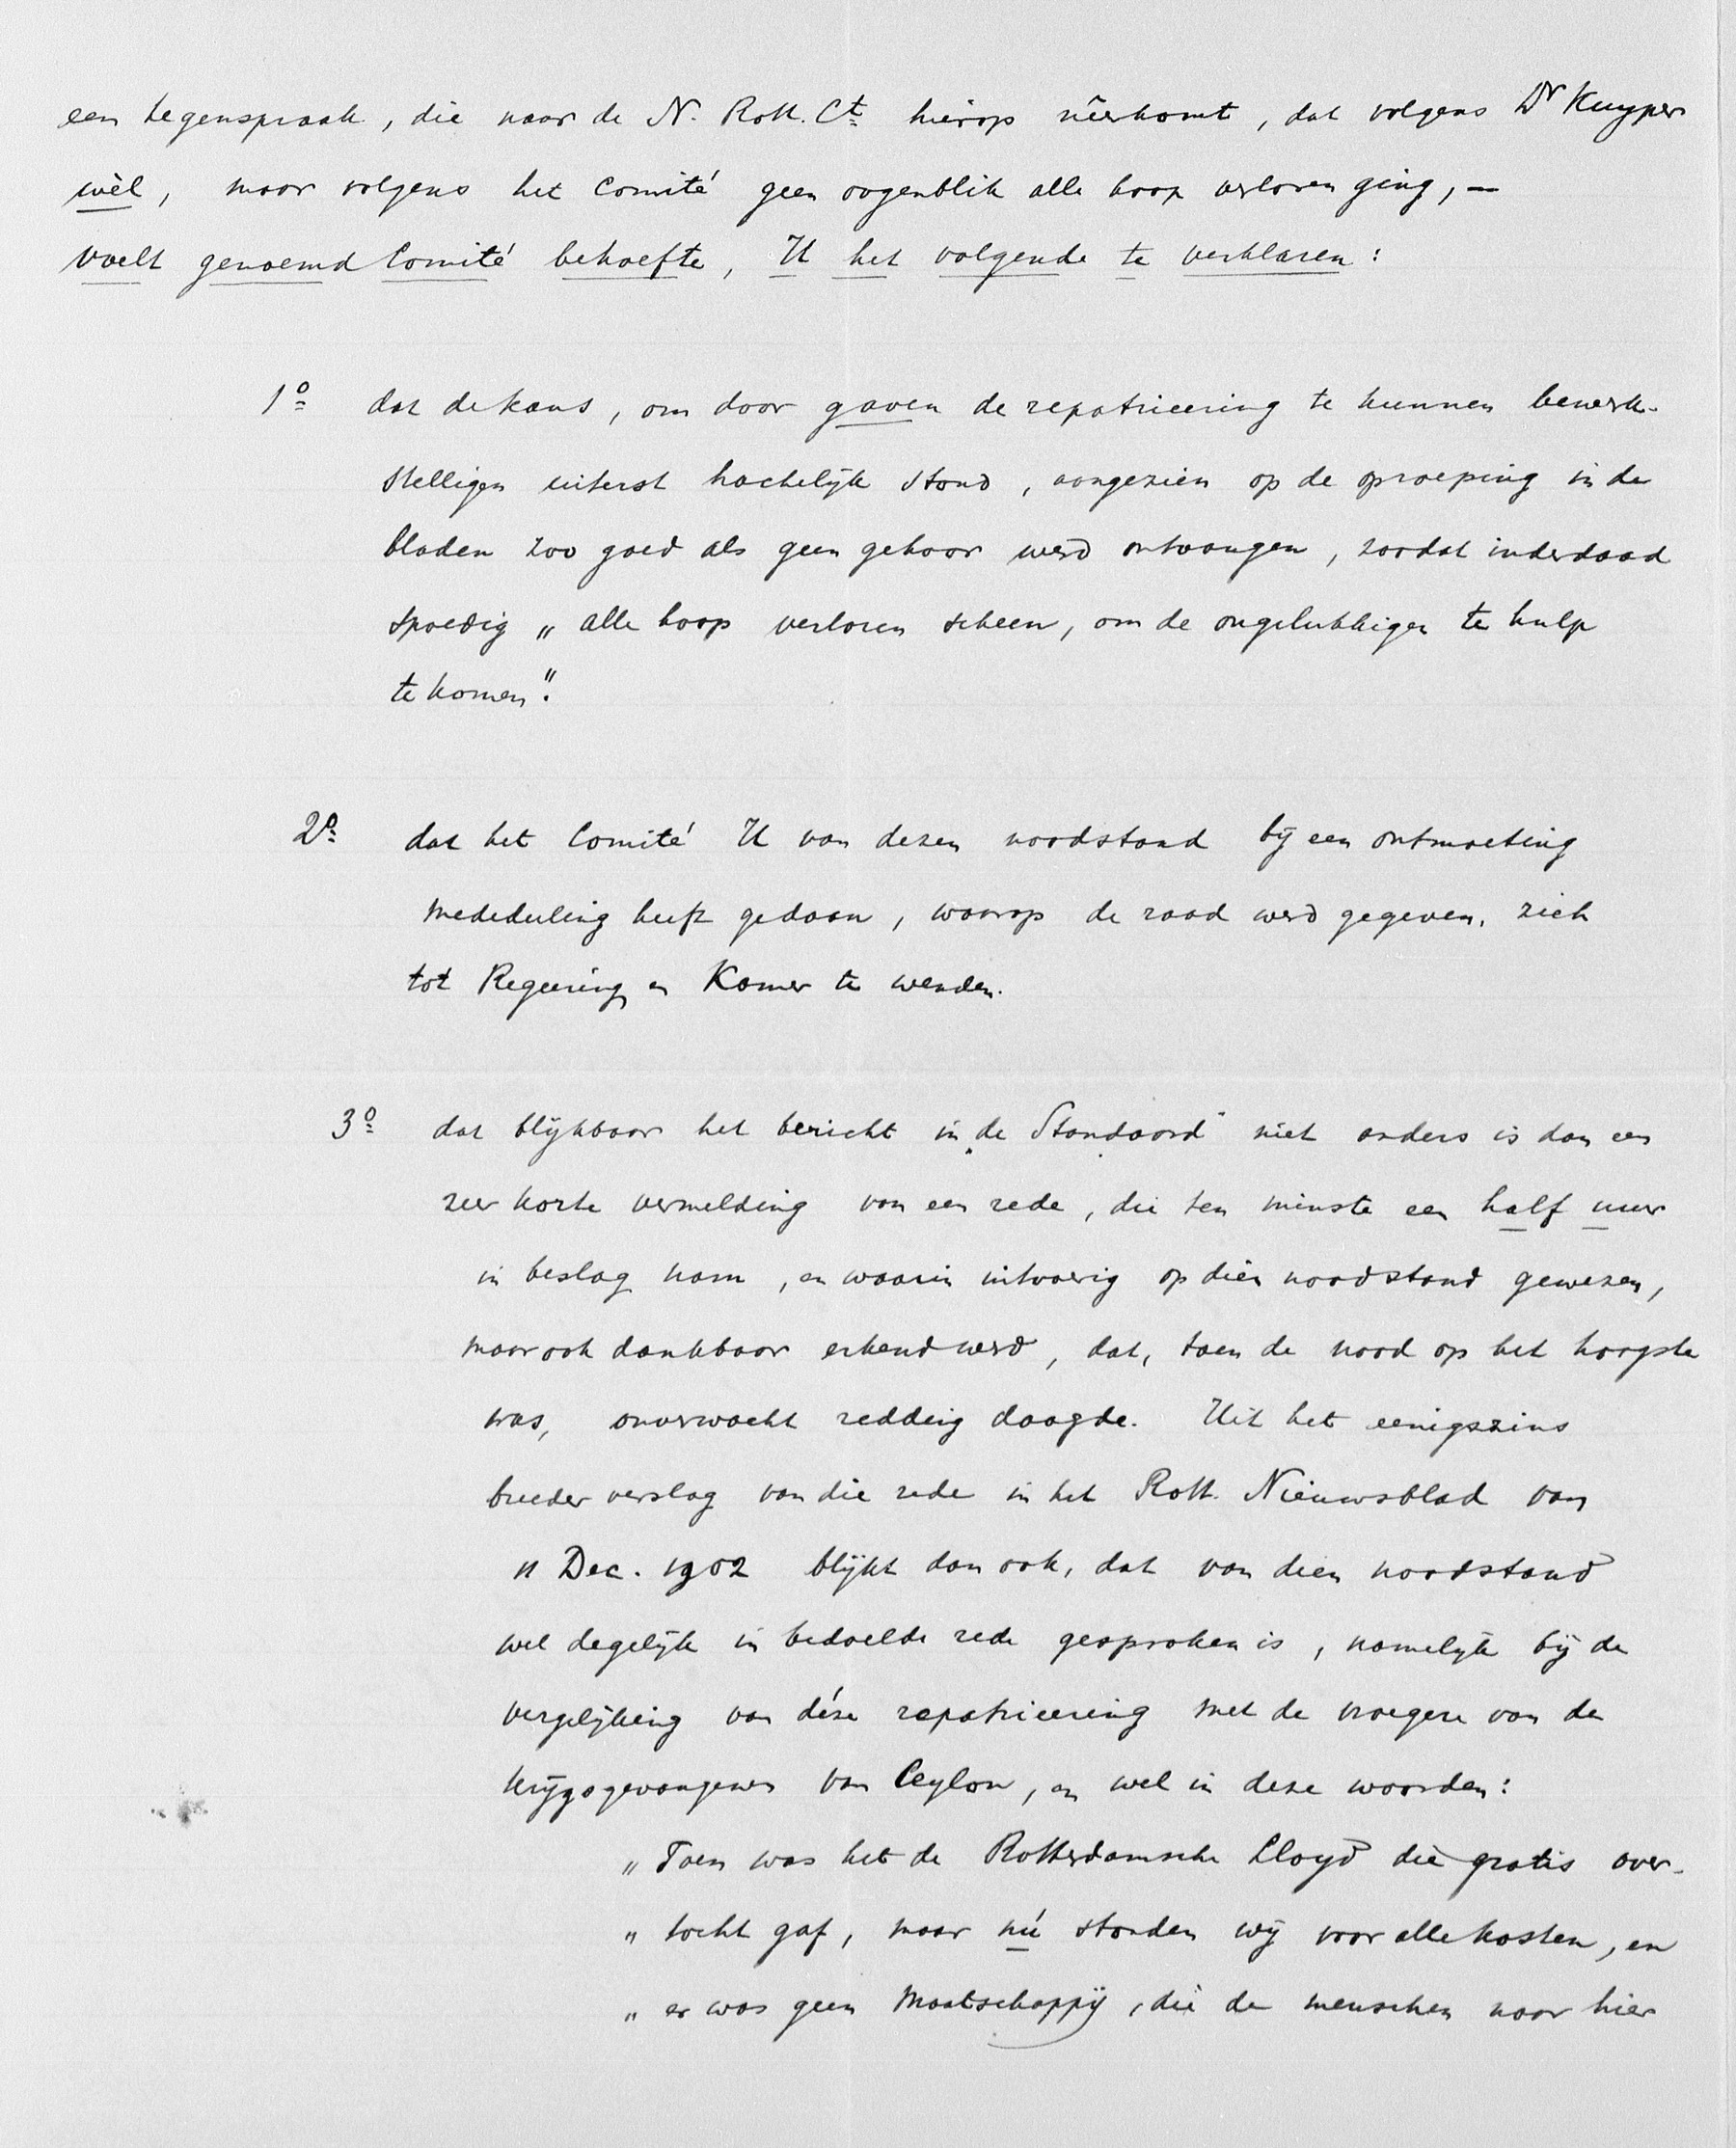 een tegenspraak, die naar de N. Rott. Ct hierop nêerkomt, dat volgens Dr Kuyper
wèl, maar volgens het Comité geen oogenblik alle hoop verloren ging, —
voelt genoemd Comité behoefte, U het volgende te verklaren:
1o dat de kans, om door gaven de repatrieering te kunnen bewerk-
stelligen uiterst hachelijk stond, aangezien op de oproeping in de
bladen zoo goed als geen gehoor werd ontvangen, zoodat inderdaad
spoedig „alle hoop verloren scheen, om de ongelukkigen te hulp
te komen".
2o dat het Comité U van dezen noodstand bij een ontmoeting
mededeeling heeft gedaan, waarop de raad werd gegeven, zich
tot Regeering en Kamer te wenden.
3o dat blijkbaar het bericht in „de Standaard" niet anders is dan een
zeer korte vermelding van een rede, die ten minste een half uur
in beslag nam, en waarin uitvoerig op dien noodstand gewezen,
maar ook dankbaar erkend werd, dat, toen de nood op het hoogste
was, onverwacht redding daagde. Uit het eenigszins
breeder verslag van die rede in het Rott. Nieuwsblad van
11 Dec. 1902 blijkt dan ook, dat van dien noodstand
wel degelijk in bedoelde rede gesproken is, namelijk bij de
vergelijking van déze repatrieering met de vroegere van de
krijgsgevangenen van Ceylon, en wel in deze woorden:
„Toen was het de Rotterdamsche Lloyd die gratis over-
„tocht gaf, maar nú stonden wij voor alle kosten, en
„er was geen Maatschappij, die de menschen naar hier